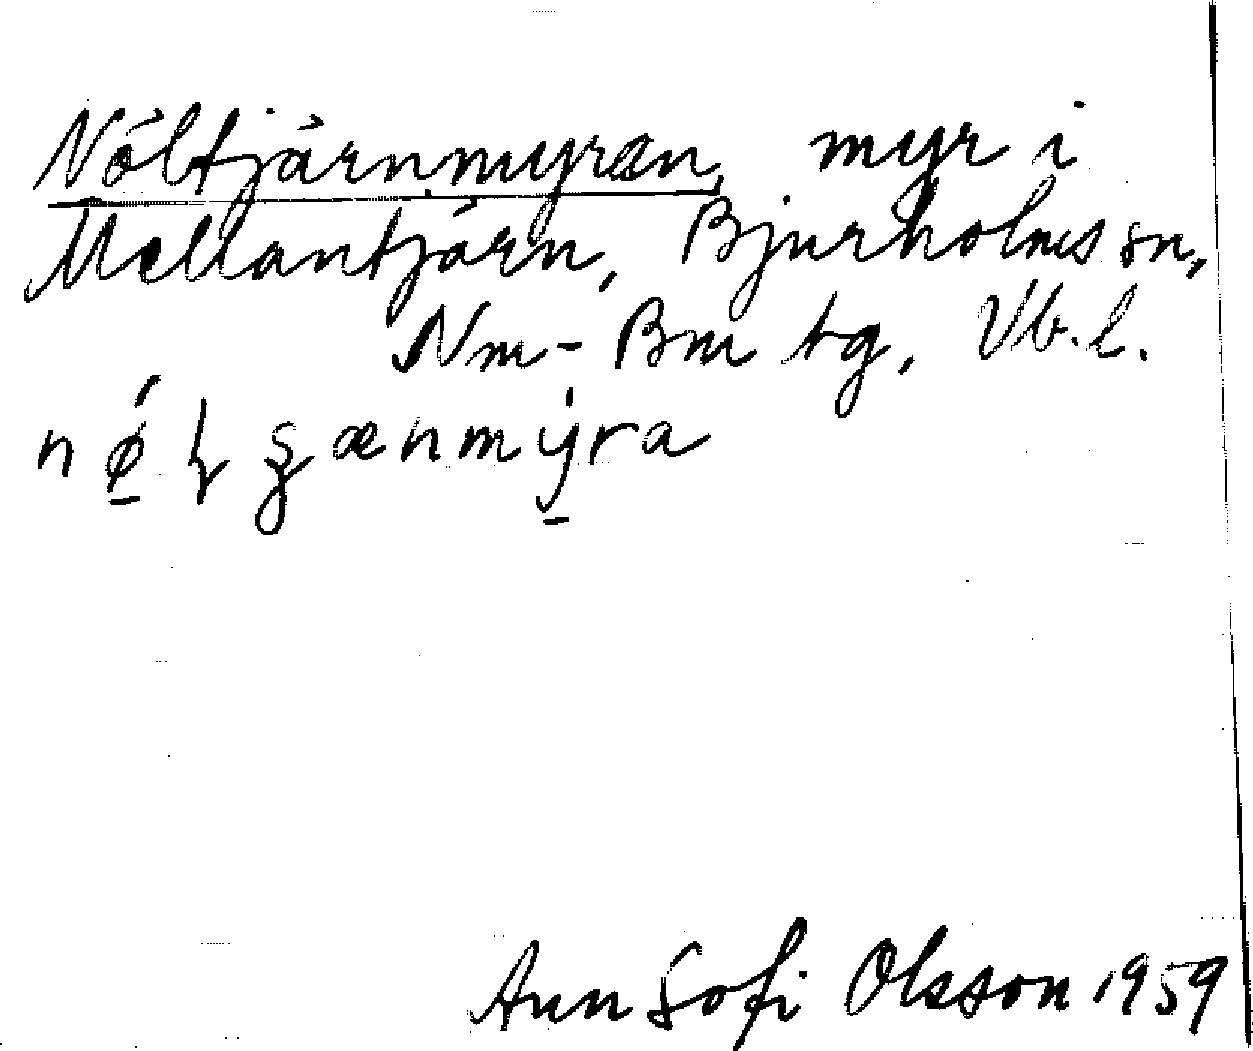 Nöltjärnmyran, myr i
Mellantjärn, Bjurholms sn,
Nm-Bm tg, Vb.l.
Ann Sofi Olsson 1959